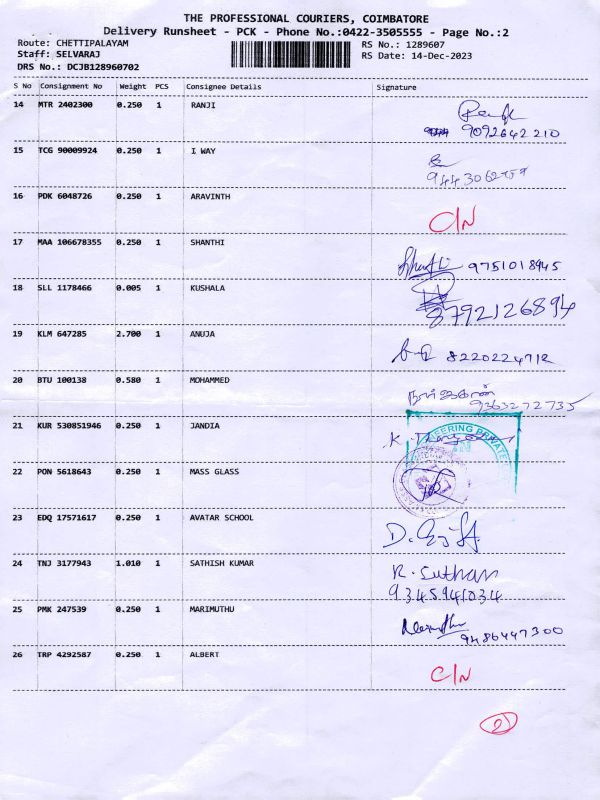 THE PROFESSIONAL COURIERS, COIMBATORE
Delivery Runsheet - PCK - Phone No.:0422-3505555 - Page No.:2
Route: CHETTIPALAYAM RS No.: 1289607
Staff: SELVARAJ RS Date: 14-Dec-2023
DRS No.: DCJB128960702
S No Consignment No Weight PCS Consignee Details Signature
14 MTR 2402300 0.250 1 RANJI
9092642210
15 TCG 90009924 0.250 1 I WAY
16 PDK 6048726 0.250 1 ARAVINTH
C/N
17 MAA 106678355 0.250 1 SHANTHI
9751018945
18 SLL 1178466 0.005 1 KUSHALA
8792126894
19 KLM 647285 2.700 1 ANUJA
8220224712
20 BTU 100138 0.580 1 MOHAMMED
9363272735
21 KUR 530851946 0.250 1 JANDIA
K.
22 PON 5618643 0.250 1 MASS GLASS
23 EDQ 17571617 0.250 1 AVATAR SCHOOL
D.
24 TNJ 3177943 1.010 1 SATHISH KUMAR
R. Suthan
9345941034
25 PMK 247539 0.250 1 MARIMUTHU
9486447300
26 TRP 4292587 0.250 1 ALBERT
C/N
2